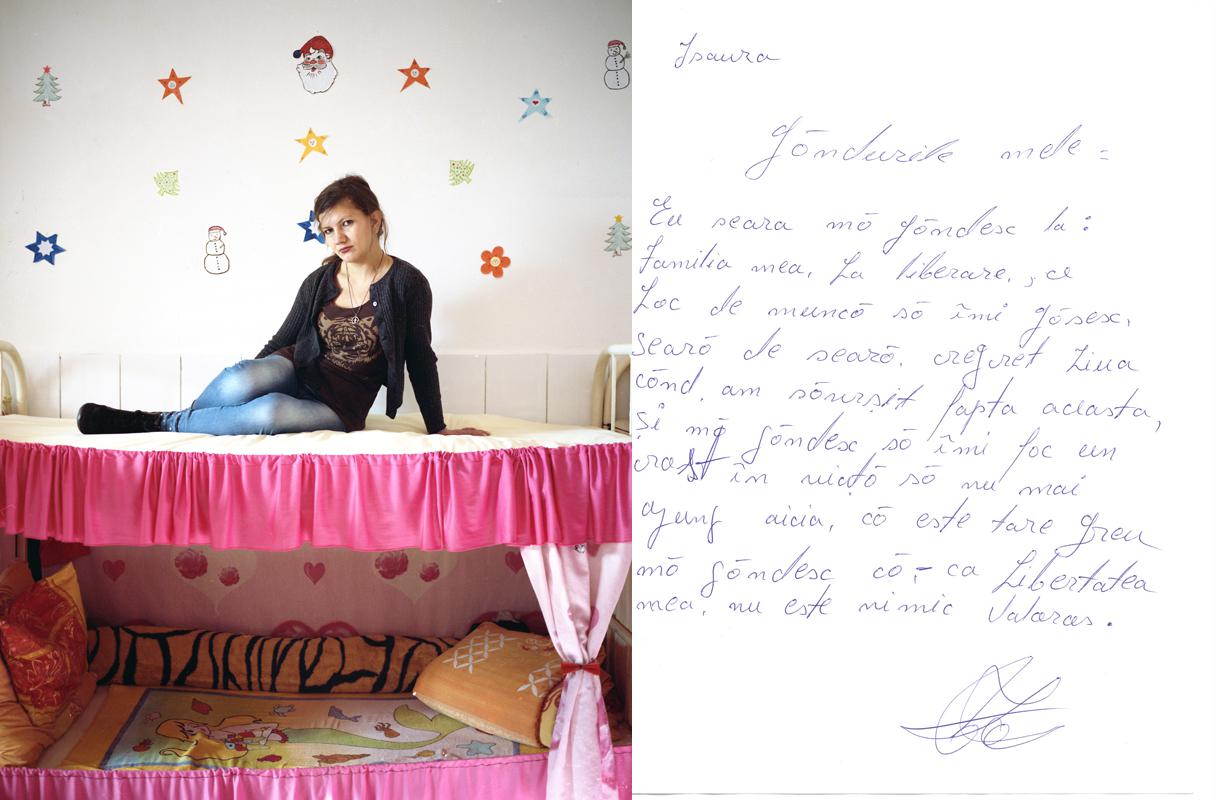 Isaura
Gōndurile mele =
Eu seara mō gōndesc la :
Familia mea, La liberare, ce
Loc de muncō sō īmi gōsesc,
Searō de searō, cregret Ziua
cōnd, am sōvrșit fapta aceasta,
Și mō gōndesc sō īmi foc un
rost īn viațō sō nu mai
ajung aicia, cō este tare greu
mō gōndesc cō,- ca Libertatea
mea, nu este nimic Valaros.